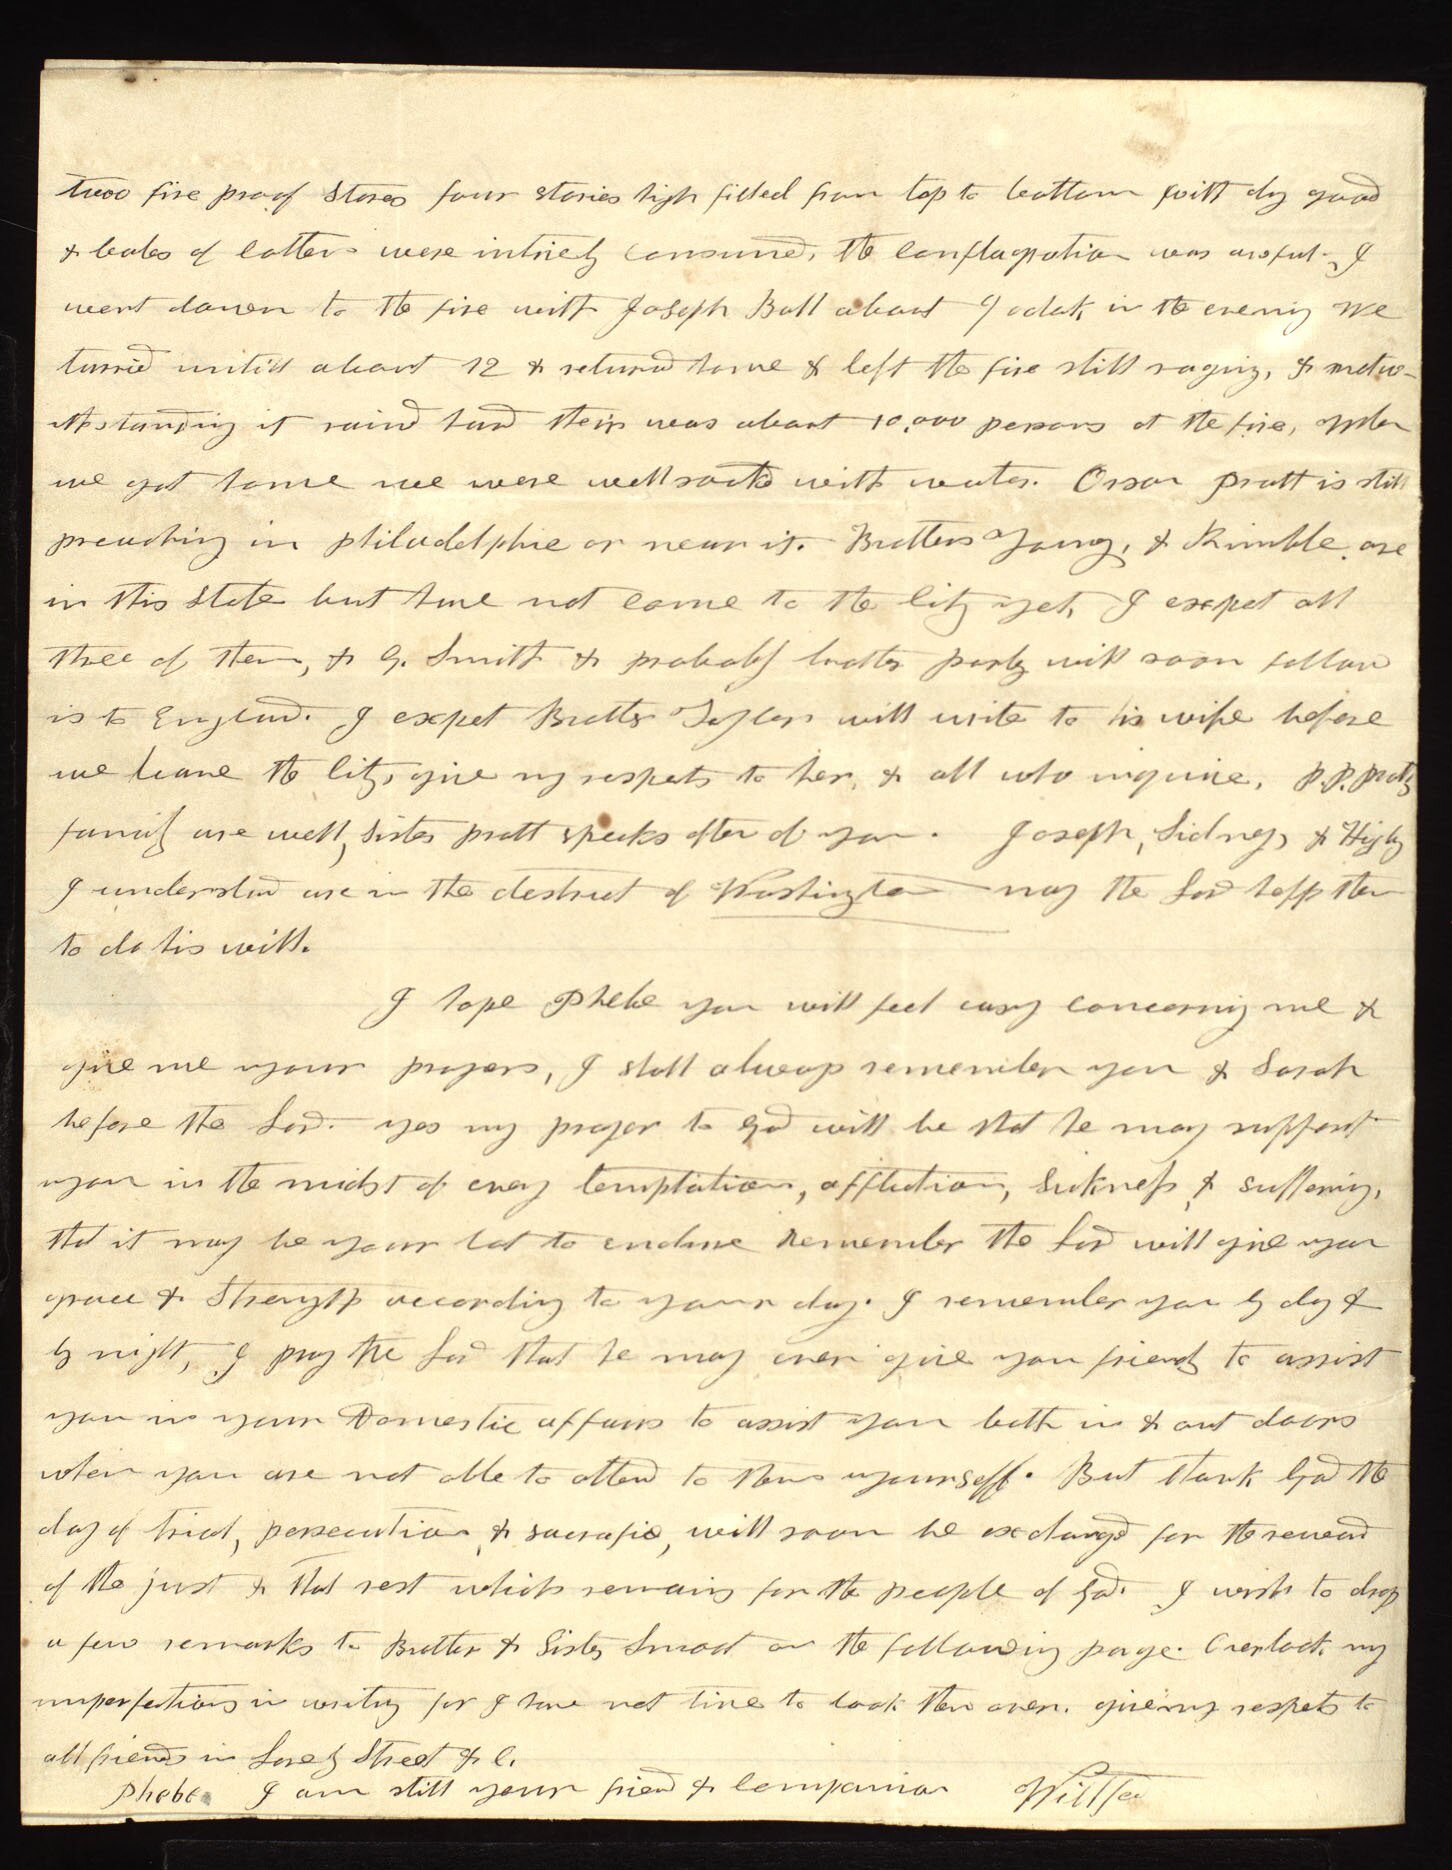 two fire proof Stores four stories high filled from top to bottom with dry good
& bales of cotton were intirely consumed, the conflagration was awful. I
went down to the fire with Joseph Ball about 9 oclock in the evening we
tarried untill about 12 & returned home & left the fire still raging, & notwi-
thstanding it raind hard their was about 10,000 persons at the fire, when
we got home we were well soaked with water. Orson Pratt is still
preaching in philadelphia or near it. Brothers Young, & Kimble are
in this State but have not come to the city yet, I expect all
three of them, & G. Smith & probably brother
is to England. I expect Brother Taylor will write to his wife before
we leave the city, give my respects to her, & all who inquire. P.P. pratts
family are well, Sister pratt speaks often of you. Joseph, Sidney, & Higby
I understand are in the destrict of Washington may the Lord help them
to do his will.
I hope Phebe you will feel easy concerning me &
give me your prayers, I shall always remember you & Sarah
before the Lord. yes my prayer to God will be that he may support
you in the midst of every temptation, affliction, Sickness, & suffering,
that it may be your lot to endure Remember the Lord will give you
grace & Strength according to your day. I remember you by day &
by night, I pray the Lord that he may ever give you friends to assist
you in your Domestic affairs to assist you both in & out doors
when you are not able to attend to them yourself. But thank God the
day of trial, persecution, & sacrafice, will soon be exchanged for the reward
of the just & that rest which remains for the people of God. I wish to drop
a few remarks to Brother & Sister Smoot on the following page. Overlook my
imperfections in writing for I have not time to look them over. give my respects to
all friends in Lovely Street & c.
Phebe I am still your friend & Companion Willford